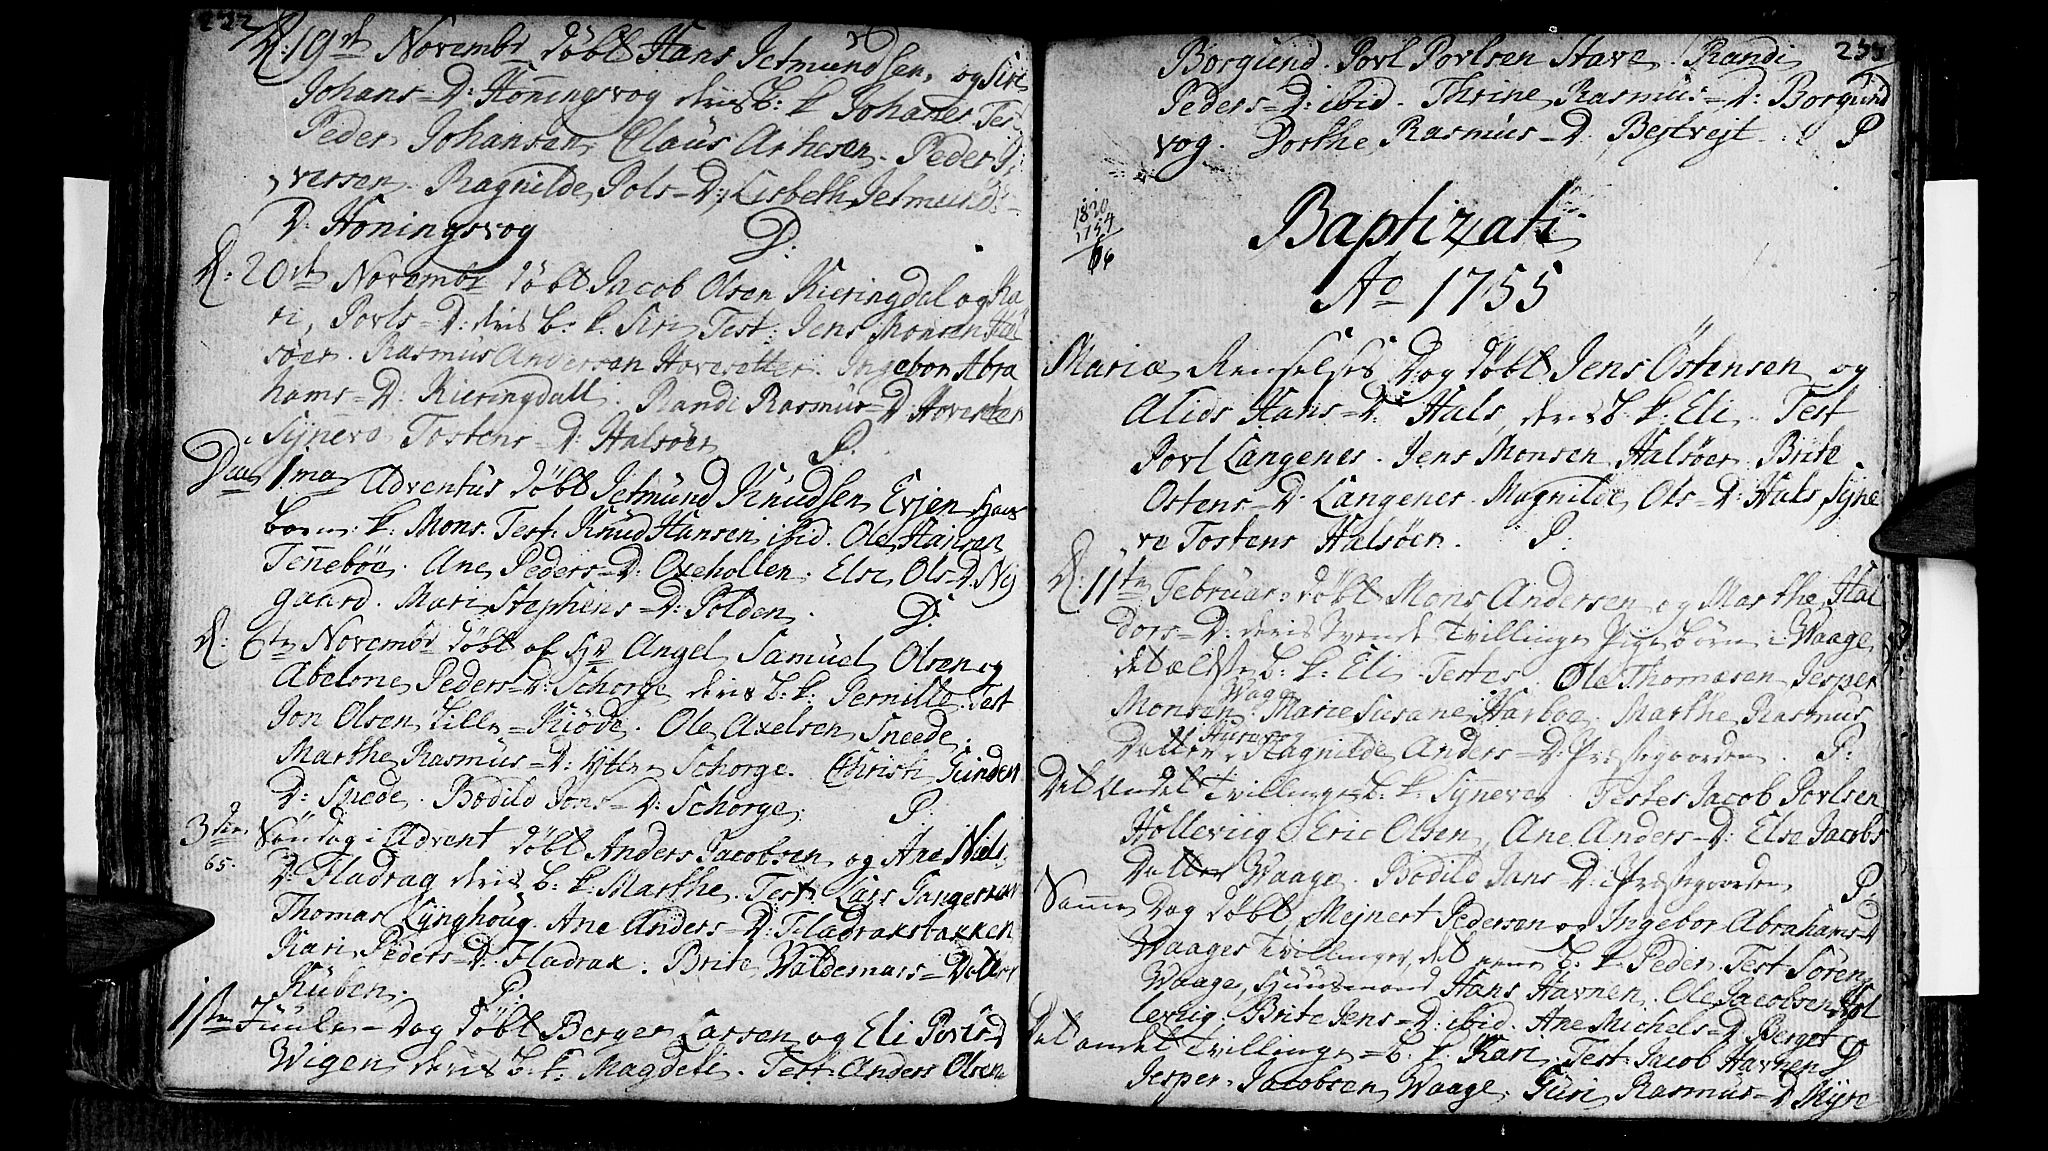 232
D: 19de Novembr døbt Hans Jetmundsen, og Siri
Johans=D: Honingsvog deris b: k: Johanes Test
Peder Johansen Claus Arnesen. Peder
versen. Ragnilde Pols=D: Lisbeth Jetmunds=
D: Honingsvog D:
D: 20de Novembr døbt Jacob Olsen Kieringdal og Ka
ri, Povls=D: deris b: k: Siri Test: Jens Monsen Hal
søen. Rasmus Andersen Hovesetter. Ingebor Abra
hams=D: Kieringdall. Randi Rasmus=D: Hovesetter
Synevo Tostens=D: Halsøen P:
Dca 1ma Adventus døbt Jetmund Knudsen Evjen
born: k: Mons. Test: Knud Hansen ibid. Ole Hansen
Tennebøe. Ane Peders=D: Oxehollen. Else Ols=D: Ny
gaard. Mari Stephens=D: Polden. D:
D: 6te Novembr døbt af Hr Angel Samuel Olsen og
Abelone Peders=D: Schorge deris b: k: Pernille. Test
Jon Olsen Lille=Kiøde. Ole Axelsen Sneede.
Marthe Rasmus=D: Ytter Schorge. Christi Gunders
D: Snede. Bodild Jons=D: Schorge. P:
3die Søndag i Advent døbt Anders Jacobsen og Ane Niels
65. D: Fladrag deris b: k: Marthe. Test: Lars
Thomas Lynghoug. Ane Anders=D: Fladraksbakken
Kari Peders=D: Fladrak. Brite Valdemars=Datter
Kuben. P:
1ste Juule=Dag døbt Berger Larsen og Eli Povls=D
Wigen deris b: k: Magdeli. Test: Anders Olsen
233
Borgund. Povl Povlsen Stave. Randi
Peders=D: ibid. Thrine Rasmus=D: Borgund
vog. Dorthe Rasmus=D: Bestvejt. P
1820
1754
66
Baptizati
Ao 1755
Mariæ Renselses Dag døbt Jens Østensen og
Alids Hans=D: Hals, deris b: k: Eli. Test
Povl Langenes. Jens Monsen Halsøen. Brite
Ostens=D: Langenes. Magnilde Ols=D: Hals, Syne
ve Tostens Halsøen. P:
D: 11te Februar: døbt Mons Andersen og Marthe Hal
dors=D: deris tvende Tvillinge Pigebørn i Waage
det ælste b: k: Eli. Testes. Ole Thomasen Jesper
Monsen Wage. Marie Susane Harboe. Marthe Rasmus
Datter Husavog Ragnilde Anders=D: Præstegaarden. P:
Det andet Tvillinge b: k: Synevo. Testes Jacob Povlsen
Hollevig Eric Olsen, Ane Anders=D: Else Jacobs
Datter Waage. Bodild Jans=D: Præstegaarden P
Samme Dag døbt Mejnert Pedersen og Ingebor Abrahams=D
Waages Tvillinger, det eene b: k: Peder. Test Søren
Waage, Huusmand Hans Havnen. Ole Jacobsen Hol
levig, Brite Jens=D: ibid. Ane Michels=D Berget
Det andet Tvillinge b: k: Kari. Test: Jacob Havnen P
Jesper Jacobsen Waage. Guri Rasmus=D Myre